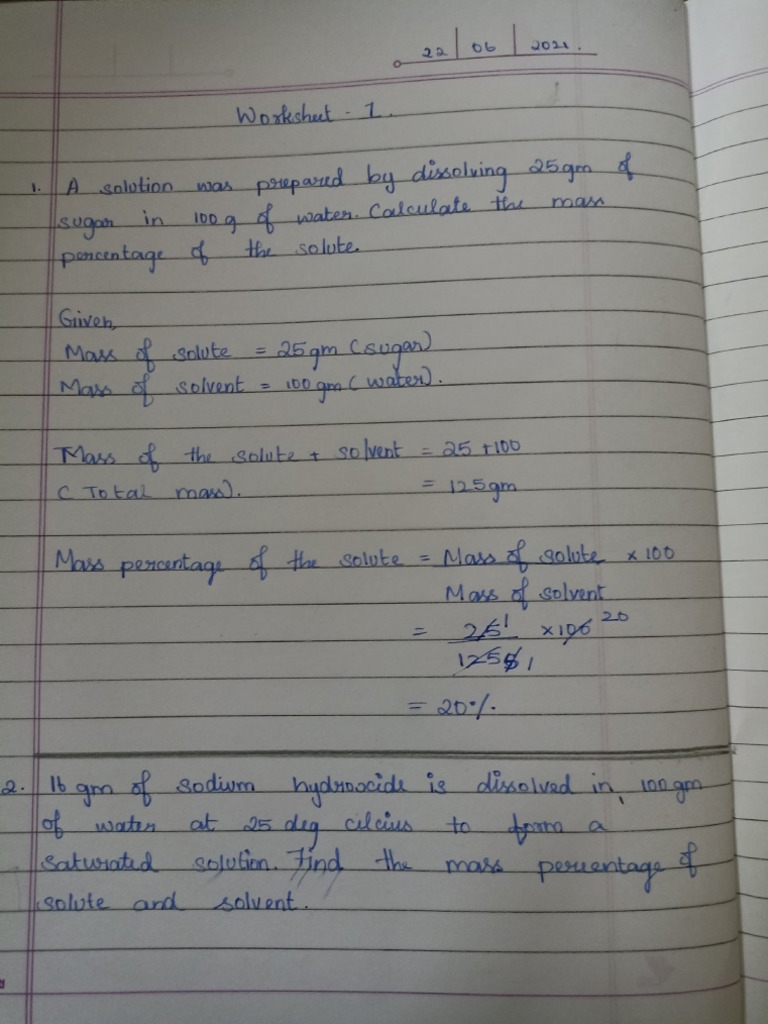 22 | 06 | 2021.
Worksheet - 1.
1. A solution was prepared by dissolving 25gm of
sugar in 100 g of water. Calculate the mass
percentage of the solute.
Given,
Mass of solute = 25gm (sugar)
Mass of solvent = 100 gm ( water).
Mass of the solute + solvent = 25 + 100
( Total mass). = 125gm
Mass percentage of the solute = Mass of solute × 100
Mass of solvent
= 25 1 × 100 20
125 5 1
= 20%.
2. 16 gm of sodium hydroxide is dissolved in, 100 gm
of water at 25 deg cilcius to form a
saturated solution. Find the mass percentage of
solute and solvent.